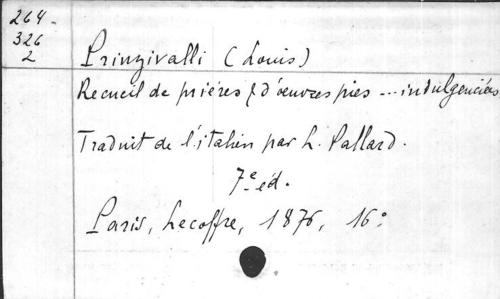 264-
326
2
Prinzivalli (Louis)
Recueil de prières & d'œuvres pies ... indulgenciées
Traduit de l'italien par L. Pallard.
7e éd.
Paris, Lecoffre, 1876, 16°